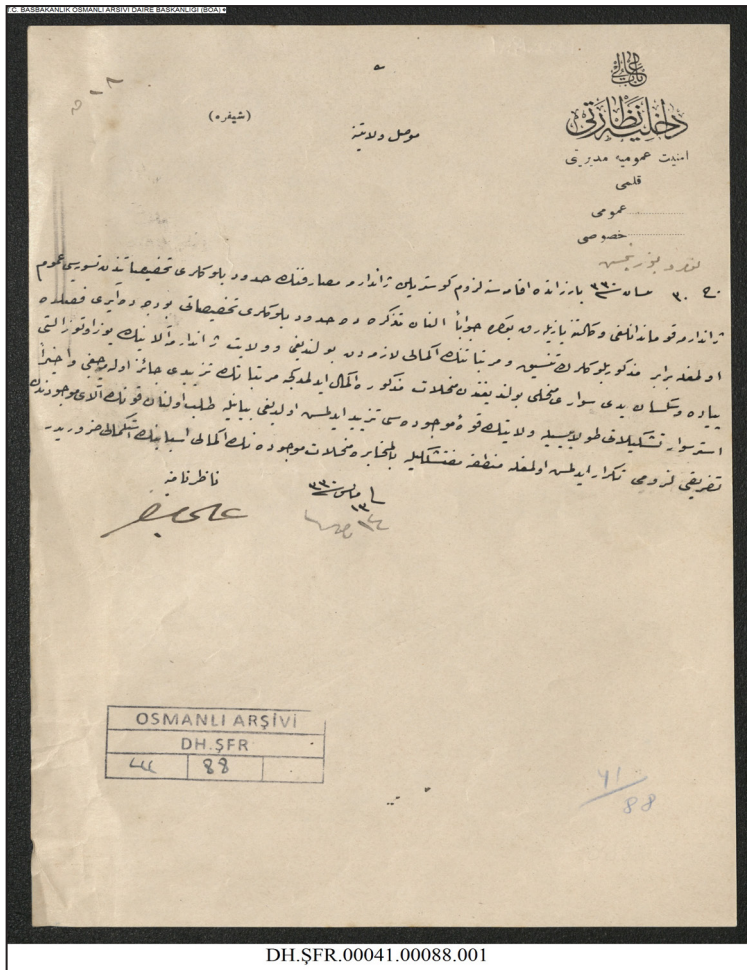 T.C. BAŞBAKANLIK OSMANLI ARŞİVİ DAİRE BAŞKANLIĞI (BOA)
باب عالی
داخلیه نظارتی
امنیت عمومیه مدیریتی
قلمی
عمومی
خصوصی
(شیفره)
موصل ولایتنه
ج ٣٠ نیسان ٣٣٠ بارزانده اقامه سنه لزوم کوستریلن ژاندارمه مصارفنك حدود بلوکلری تخصیصاتندن تسویه سی عموم
ژاندارمه قوماندانلغی وکالتنه یازیلارق جواباً النان تذکره ده حدود بلوکلری تخصیصاتی بودجه ده آیری فصلده
اولمغله برابر مذکور بلوکلرك تنسیق و مرتباتنك اکمالی لازمه دن بولندیغی و ولایت ژاندارمه آلاینك یوز اوتوز التی
پیاده و سکسان یدی سواری منحلی بولندیغندن منحلات مذکوره اکمال ایدلمدکجه مرتباتك تزییدی جائز اوله میه جغی و اخیراً
استرسوار تشکیلاتی طولاییسیله ولایتك قوۀ موجوده سی تزیید ایدلمش اولدیغی بیانیله طلب اولنان قوتك آلای موجودندن
تفریقی لزومی تکرار ایدلمش اولمغله منطقه مفتشلکیله بالمخابره منحلات موجوده نك اکمالی اسبابنك استکمالی ضروریدر
ناظر نامنه
مایس ٣٣٠
علی منیف
OSMANLI ARŞİVİ
DH.ŞFR
88
41
88
DH.ŞFR.00041.00088.001